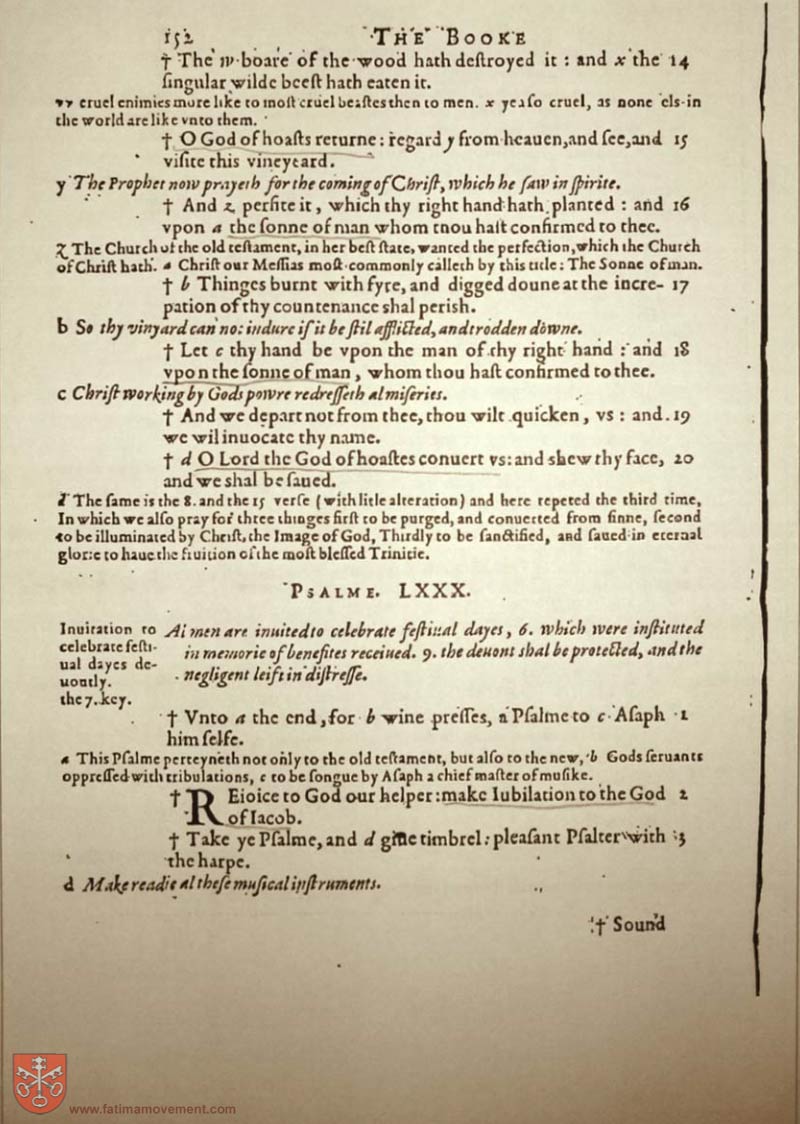 152 THE BOOKE
† The w boare of the wood hath destroyed it : and x the 14
singular wilde beest hath eaten it.
vv cruel enimies more like to most cruel beastes then to men. x yea so cruel, as none els in
the world are like vnto them.
† O God of hoasts returne: regard y from heauen, and see, and 15
visite this vineyeard.
y The Prophet now prayeth for the coming of Christ, which he saw in spirite.
† And z perfite it, which thy right hand hath planted : and 16
vpon a the sonne of man whom thou hast confirmed to thee.
z The Church of the old testament, in her best state, wanted the perfection, which the Church
of Christ hath. a Christ our Messias most commonly calleth by this title: The Sonne of man.
† b Thinges burnt with fyre, and digged doune at the incre- 17
pation of thy countenance shal perish.
b So thy vinyard can not indure if it be stil afflicted, and trodden downe.
† Let c thy hand be vpon the man of thy right hand : and 18
vpon the sonne of man, whom thou hast confirmed to thee.
c Christ working by Gods powre redresseth al miseries.
† And we depart not from thee, thou wilt quicken, vs : and 19
we wil inuocate thy name.
† d O Lord the God of hoastes conuert vs: and shew thy face, 20
and we shal be saued.
d The same is the 8. and the 15 verse (with litle alteration) and here repeted the third time,
In which we also pray for three thinges first to be purged, and conuerted from sinne, second
to be illuminated by Christ, the Image of God, Thirdly to be sanctified, and saued in eternal
glorie to haue the fruition of the most blessed Trinitie.
PSALME. LXXX.
Inuitation to
celebrate festi-
ual dayes de-
uoutly.
the 7. key.
Al men are inuited to celebrate festiual dayes, 6. which were instituted
in memorie of benefites receiued. 9. the deuout shal be protected, and the
negligent left in distresse.
† Vnto a the end, for b wine presses, a Psalme to c Asaph 1
him selfe.
a This Psalme perteyneth not only to the old testament, but also to the new, b Gods seruants
oppressed with tribulations, c to be songue by Asaph a chief master of musike.
† REioice to God our helper: make Iubilation to the God 2
of Iacob.
† Take ye Psalme, and d giue timbrel: pleasant Psalter with 3
the harpe.
d Make readie al these musical instruments.
† Sound
www.fatimamovement.com